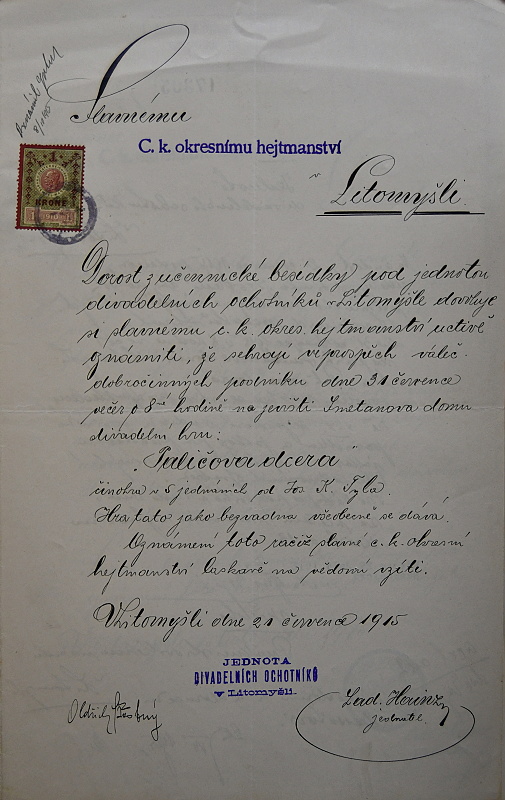 Slavnému
C. k. okresnímu hejtmanství
v
Litomyšli.
1
KRONE
Dorost z učennické besídky pod jednotou
divadelních ochotníků v Litomyšle dovoluje
si slavnému c. k. okres. hejtmanství uctivě
oznámiti, že sehrají ve prospěch váleč.
dobročinných podniků dne 31 července
večer o 8mé hodině na jevišti Smetanova domu
divadelní hru:
„Paličova dcera"
činohra v 5 jednáních od Jos. K. Tyla.
Hra tato jako bezvadna všeobecně se dává.
Oznámení toto račiž slavné c. k. okresní
hejtmanství laskavě na vědomí vzíti.
V Litomyšli dne 21 července 1915
JEDNOTA
DIVADELNÍCH OCHOTNÍKŮ
v Litomyšli.
Oldřich Šťastný
Lad. Heinz
jednatel.